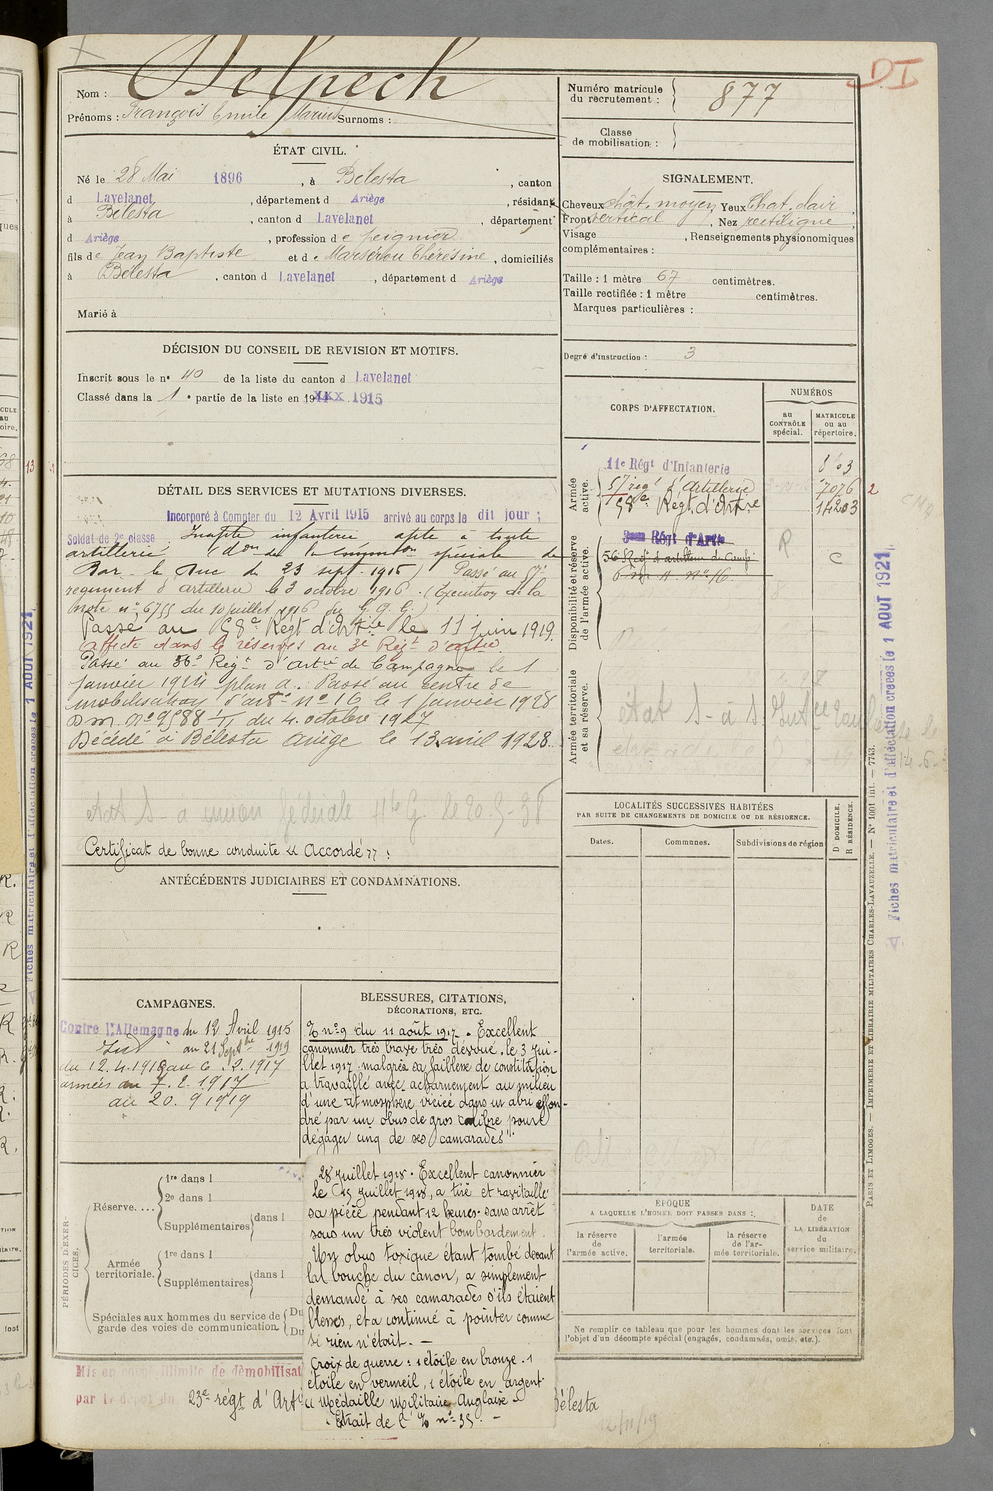 DI
Nom : Delpech
Prénoms : François Emile Marius Surnoms :
Numéro matricule du recrutement : 877
Classe de mobilisation :
ÉTAT CIVIL.
Né le 28 Mai 1896, à Bélesta, canton
d Lavelanet, département d Ariège, résidant
à Bélesta, canton d Lavelanet, département
d Ariège, profession de peignier
fils de Jean Baptiste et de Marsérou Thérésine, domiciliés
à Bélesta, canton d Lavelanet, département d Ariège
Marié à
SIGNALEMENT.
Cheveux chât. moyen, Yeux Chat. clair
Front vertical, Nez rectiligne
Visage , Renseignements physionomiques
complémentaires :
Taille : 1 mètre 67 centimètres.
Taille rectifiée : 1 mètre centimètres.
Marques particulières :
Degré d'instruction : 3
DÉCISION DU CONSEIL DE REVISION ET MOTIFS.
Inscrit sous le n° 40 de la liste du canton d Lavelanet
Classé dans la 1e partie de la liste en 19 1915
CORPS D'AFFECTATION.
NUMÉROS
au CONTRÔLE spécial.
MATRICULE ou au répertoire.
Armée active.
11e Régt d'Infanterie 8103
57 régt d'Artillerie 7076
58e Régt d'Artie 14203
2
Disponibilité et réserve de l'armée active.
3me Régt d'Artie R
56 Régt d'artillerie de Camp. C
Armée territoriale et sa réserve.
DÉTAIL DES SERVICES ET MUTATIONS DIVERSES.
Incorporé à Compter du 12 Avril 1915 arrivé au corps le dit jour ;
Soldat de 2e classe. Inapte infanterie apte à toute
artillerie (don de la Commission spéciale de
Bar-le-Duc du 23 sept. 1916) Passé au 57
régiment d'artillerie le 3 octobre 1916. (Exécution de la
note n° 6755 du 10 juillet 1916 du G.Q.G.)
Passé au 58e Régt d'Artie le 11 juin 1919.
Affecté dans la réserve au 3e Régt d'artie
Passé au 56e Régt d'artie de Campagne le 1
janvier 1924 plan A. Passé au centre de
mobilisation d'artie n° 16 le 1 janvier 1928
D.M. n° 9588 du 4 octobre 1927
Décédé à Bélesta Ariège le 13 avril 1928.
Certificat de bonne conduite "Accordé" ;
ANTÉCÉDENTS JUDICIAIRES ET CONDAMNATIONS.
LOCALITÉS SUCCESSIVES HABITÉES
PAR SUITE DE CHANGEMENTS DE DOMICILE OU DE RÉSIDENCE.
Dates.
Communes.
Subdivisions de région
D DOMICILE.
R RÉSIDENCE.
CAMPAGNES.
Contre l'Allemagne du 12 Avril 1915
au 21 Septbre 1919
du 12.4.1915 au 6.2.1917
armées du 7.2.1917
au 20.9.1919
BLESSURES, CITATIONS,
DÉCORATIONS, ETC.
n° 9 du 11 août 1917. Excellent
canonnier très brave très dévoué. le 3 jui-
llet 1917 malgré sa faiblesse de constitution
a travaillé avec acharnement au milieu
d'une atmosphère viciée dans un abri effon-
dré par un obus de gros calibre pour
dégager cinq de ses camarades".
28 juillet 1918. Excellent canonnier
le 15 juillet 1918, a tiré et ravitaillé
sa pièce pendant 12 heures sans arrêt
sous un très violent bombardement.
Un obus toxique étant tombé devant
la bouche du canon, a simplement
demandé à ses camarades s'ils étaient
blessés, et a continué à pointer comme
si rien n'était. —
Croix de guerre : 1 étoile en bronze. 1
étoile en vermeil, 1 étoile en argent
Médaille Militaire Anglaise
Extrait de l' n° 35 —
PÉRIODES D'EXERCICES.
Réserve....
1re dans l
2e dans l
Supplémentaires dans l
Armée territoriale.
1re dans l
Supplémentaires dans l
Spéciales aux hommes du service de
garde des voies de communication.
Du
Du
ÉPOQUE
A LAQUELLE L'HOMME DOIT PASSER DANS :
la réserve de l'armée active.
l'armée territoriale.
la réserve de l'armée territoriale.
DATE de LA LIBÉRATION du service militaire.
Ne remplir ce tableau que pour les hommes dont les services font
l'objet d'un décompte spécial (engagés, condamnés, omis, etc.).
Mis en congé illimité de démobilisat
par le dépôt du 23e régt d'Art Bélesta
12/11/19
PARIS ET LIMOGES. — IMPRIMERIE ET LIBRAIRIE MILITAIRES CHARLES-LAVAUZELLE. — N° 1001 int. — 7743.
Fiches matriculaire et d'affectation créées le 1 AOUT 1921
Fiches matriculaire et d'affectation créées le 1 AOUT 1921